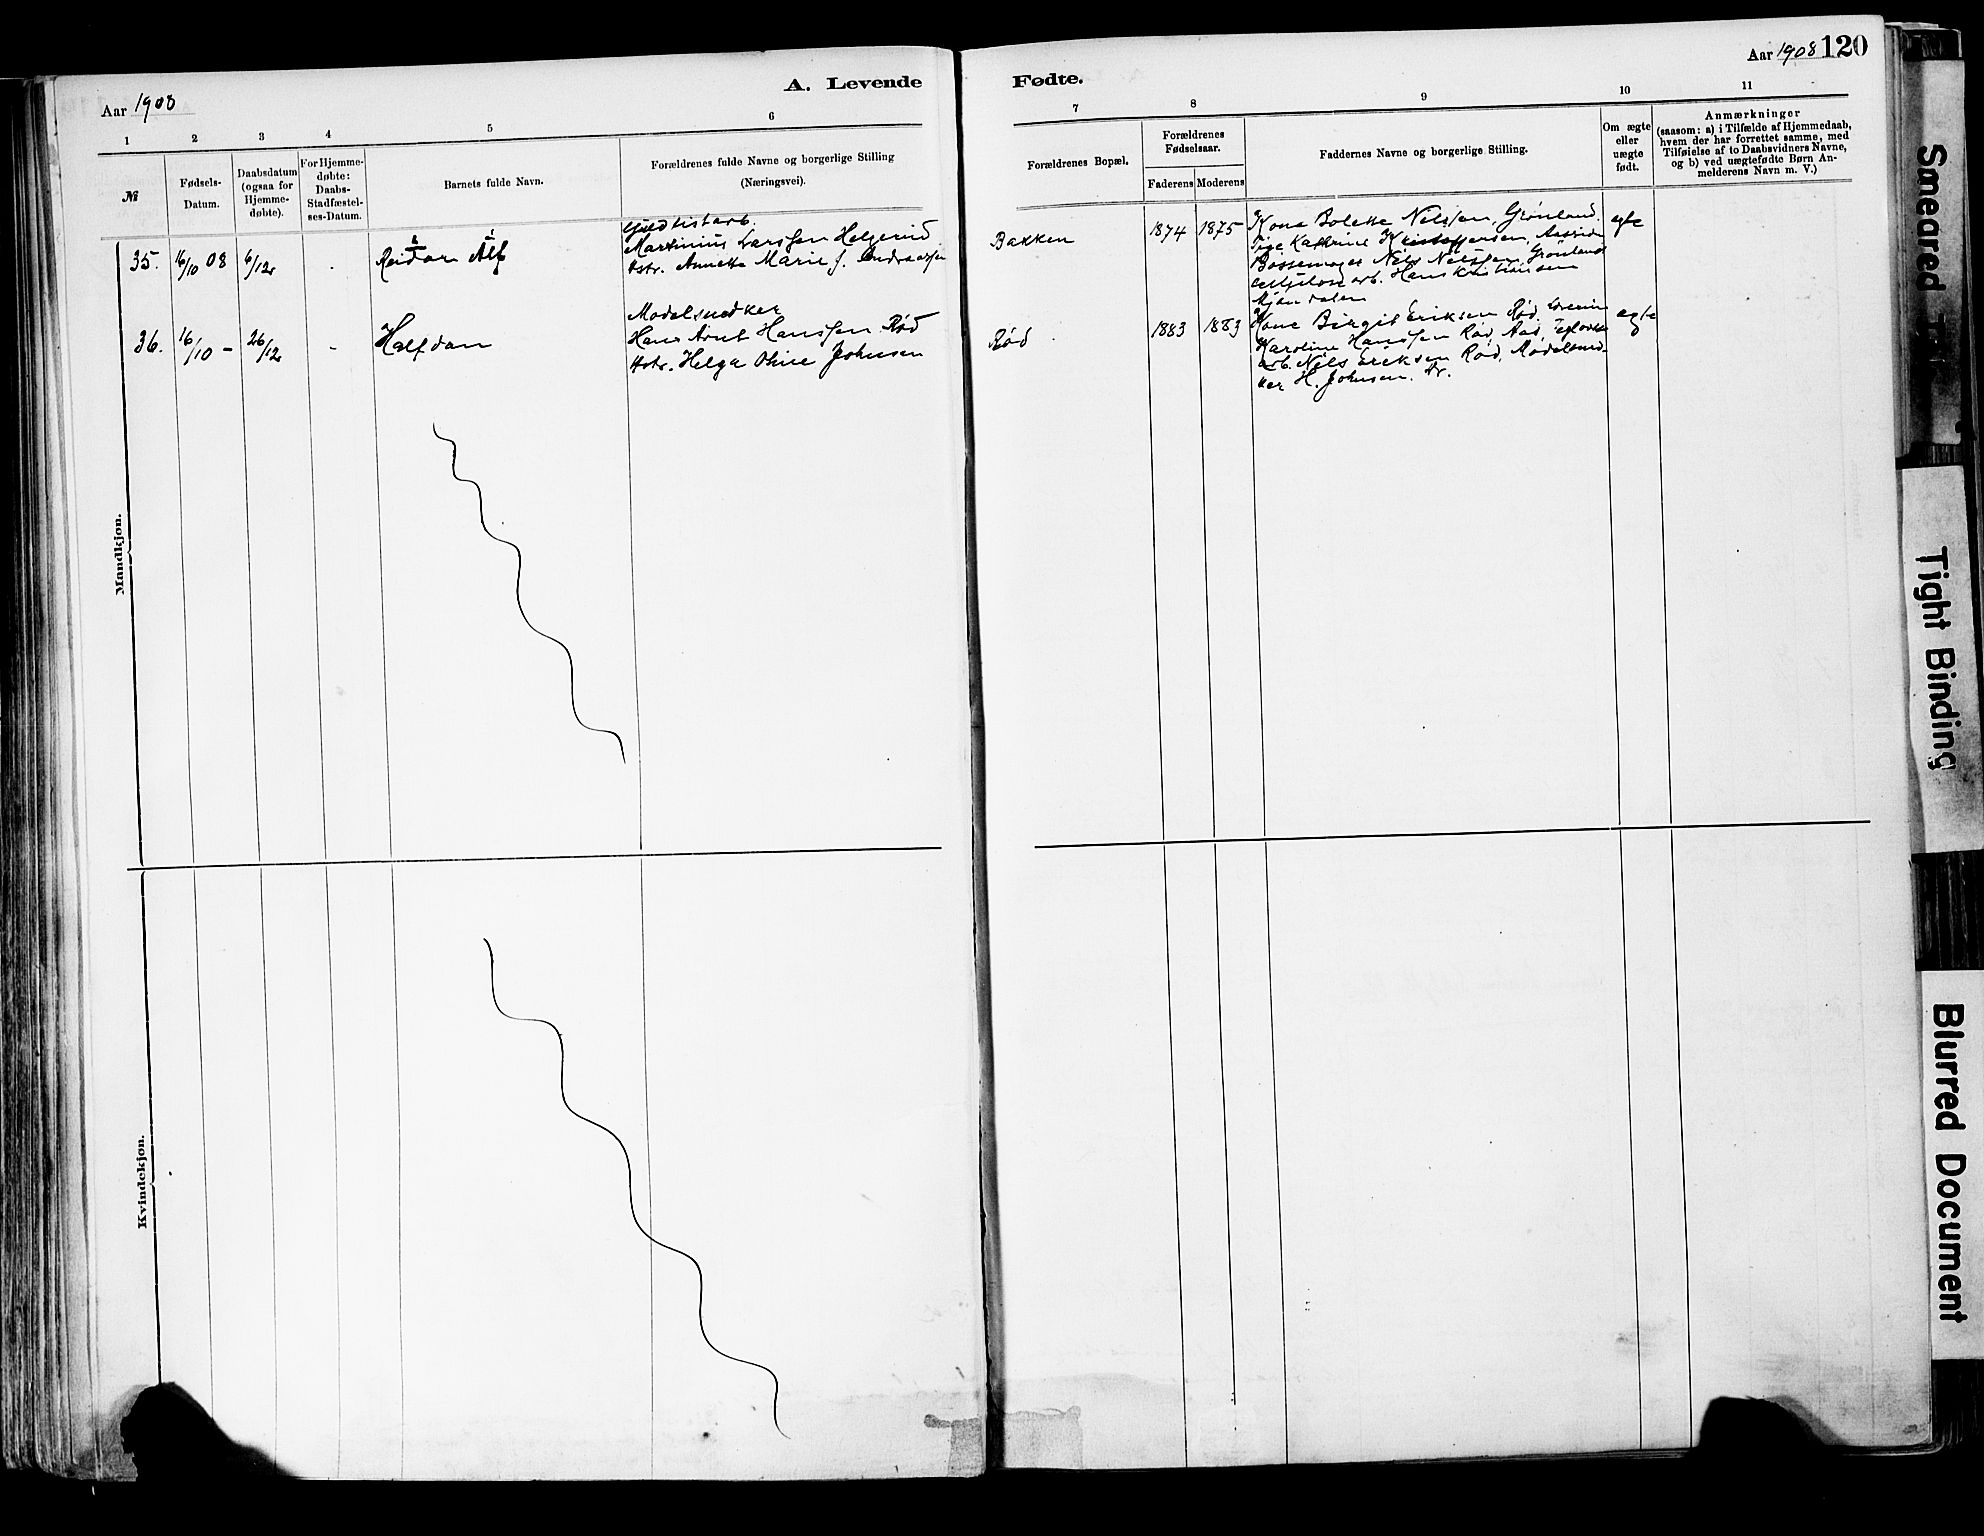 Aar 1908
A. Levende
1 2 3 4 5 6
№
Fødsels-
Datum.
Daabsdatum
(ogsaa for
Hjemme-
døbte).
For Hjemme-
døbte:
Daabs-
Stadfæstel-
ses-Datum.
Barnets fulde Navn.
Forældrenes fulde Navne og borgerlige Stilling
(Næringsvei).
Mandkjøn.
35. 16/10 08 6/12 - Reidar Alf
Martinius Larssen Helgerud
Hstr. Annette Marie f. Andreassen
36. 16/10 - 26/12 - Halfdan
Modelsnedker
Hans Arnt Hanssen Rød
Hstr. Helga Oline Johnsen
Kvindekjøn.
Fødte.
Aar 1908 120
7 8 9 10 11
Forældrenes Bopæl.
Forældrenes
Fødselsaar.
Faderens Moderens
Faddernes Navne og borgerlige Stilling.
Om ægte
eller
uægte
født.
Anmærkninger
(saasom: a) i Tilfælde af Hjemmedaab,
hvem der har forrettet samme, med
Tilføielse af to Daabsvidners Navne,
og b) ved uægtefødte Børn An-
melderens Navn m. V.)
Bakken 1874 1875 Kone Bolette Nilssen, Grønland. egte
Pige Kathrine Kristoffersen,
Bøssemager Nils Nilssen, Grønland
arb. Hans Kristiansen
Mjøndalen
Rød 1883 1883 Kone Birgit Eriksen Rød, egte
Karoline Hanssen Rød,
arb. Nils Eriksen Rød, Modelsned-
ker H. Johnsen. Dr.
Smeared
Tight Binding
Blurred Document